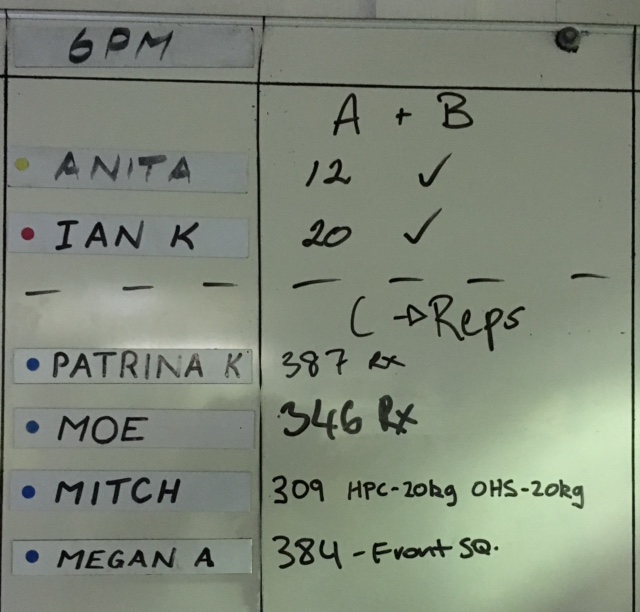 6PM
A + B
ANITA 12 ✓
IAN K 20 ✓
C → Reps
PATRINA K 387 Rx
MOE 346 Rx
MITCH 309 HPC-20kg OHS-20kg
MEGAN A 384 - Front SQ.